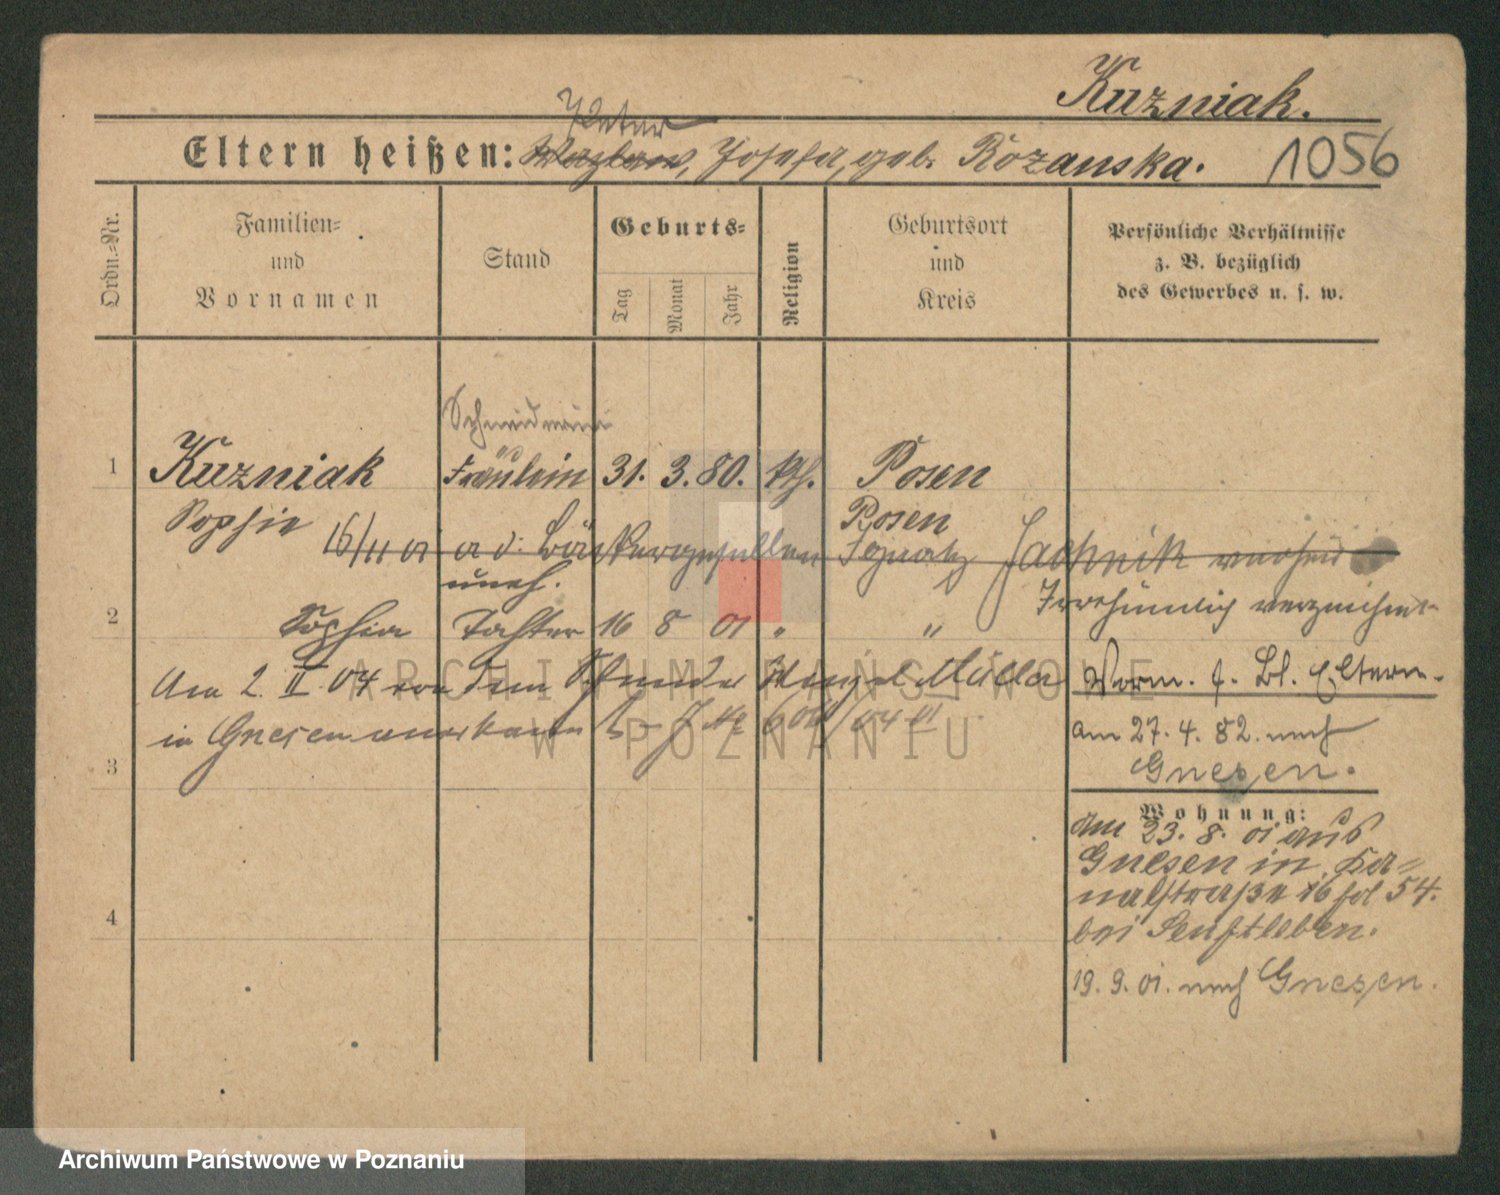 Kuzniak.
Peter
Eltern heißen: Wazlaw, Josefa, geb. Rozanska. 1056
Ordn.-Nr.
Familien-
und
Vornamen
Stand
Geburts-
Tag
Monat
Jahr
Religion
Geburtsort
und
Kreis
Persönliche Verhältnisse
z. B. bezüglich
des Gewerbes u. s. w.
Schneiderin
1 Kuzniak Fräulein 31. 3. 80. kth. Posen
Sophie Posen
16/11 01 a. d. Bäckergesellen Ignatz Jachnik
uneh. Irrthümlich verzeichnet
2 Sophia Tochter 16 8 01 " "
Am 2. II. 04 von dem Schneider Müller
in Gnesen anerkannt
Vorm. s. Bl. Eltern.
am 27. 4. 82. nach
Gnesen.
3
Wohnung:
Am 23. 8. 01 aus
Gnesen in Ka-
nalstraße 16 fol 54.
bei Senftleben.
4
19. 9. 01. nach Gnesen.
ARCHIWUM PAŃSTWOWE
W POZNANIU
Archiwum Państwowe w Poznaniu